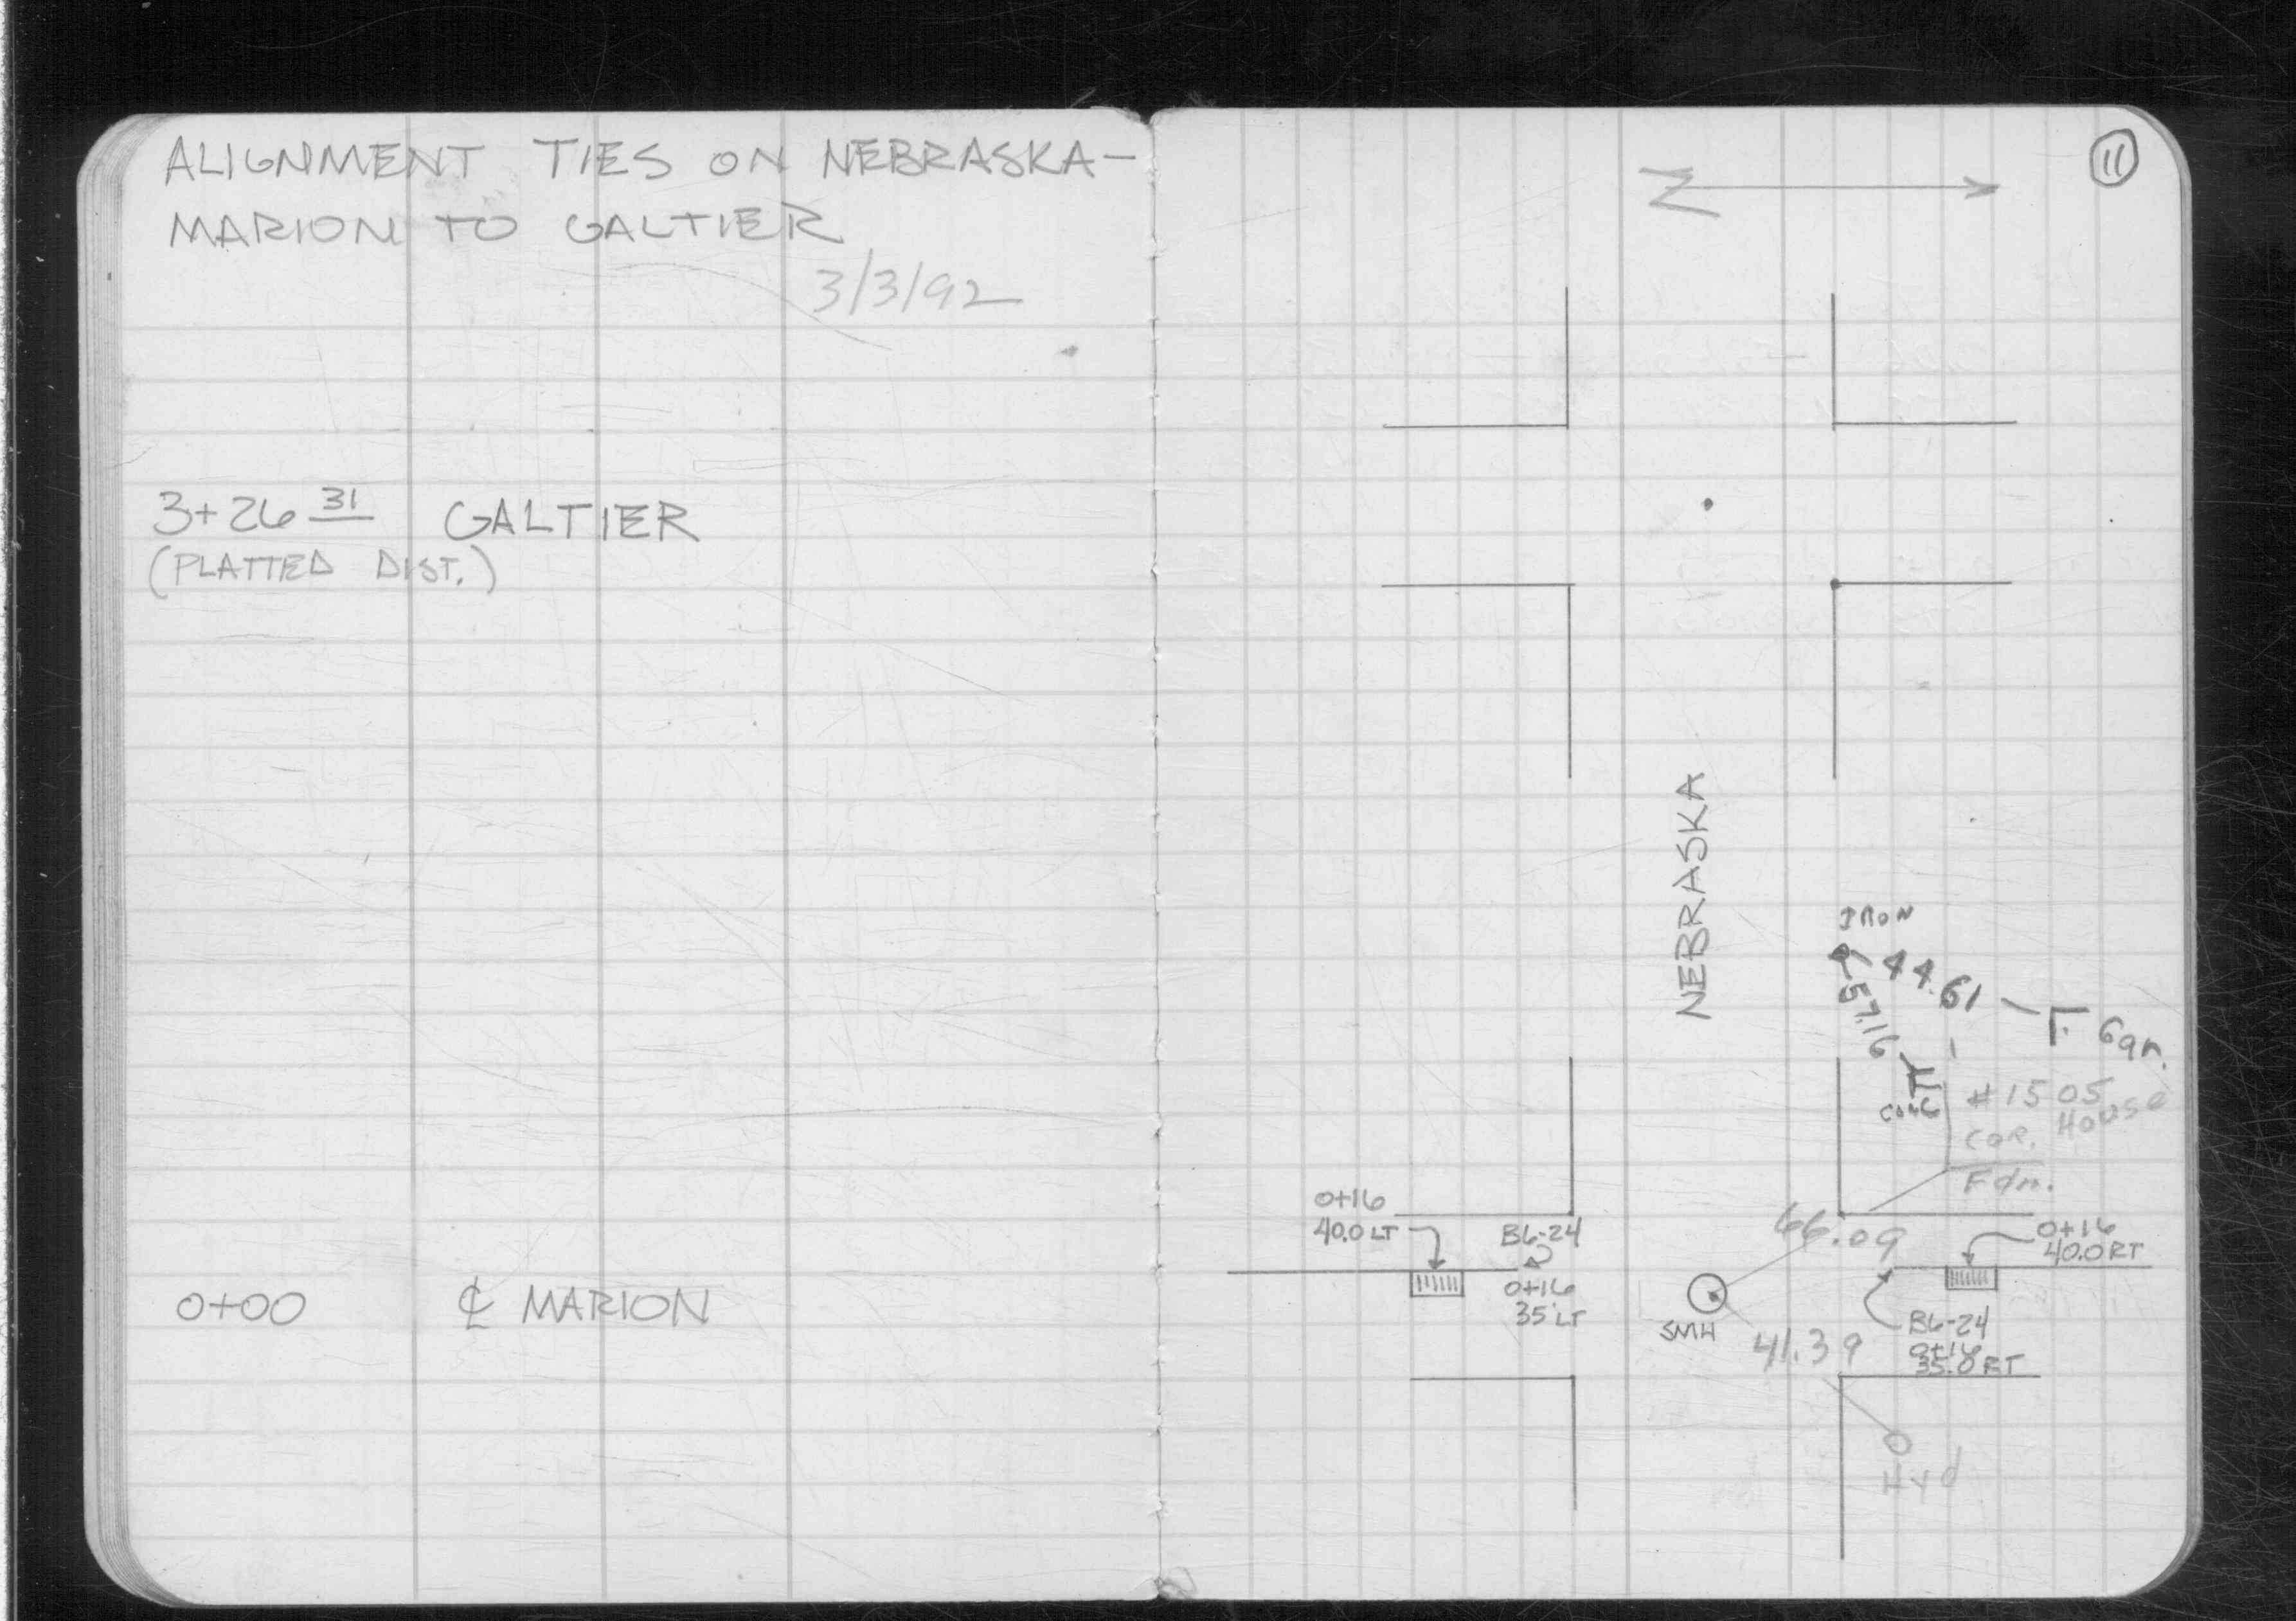 ALIGNMENT TIES ON NEBRASKA-
MARION TO GALTIER
3/3/92
3+26 31 GALTIER
(PLATTED DIST.)
0+00 ℄ MARION
11
N
NEBRASKA
IRON
44.61
57.16
Gar.
CONC
#1505
COR. House
Fdn.
66.09
0+16
40.0 LT
B6-24
0+16
35 LT
0+16
40.0 RT
SMH
B6-24
0+16
35.0 RT
41.39
Hyd